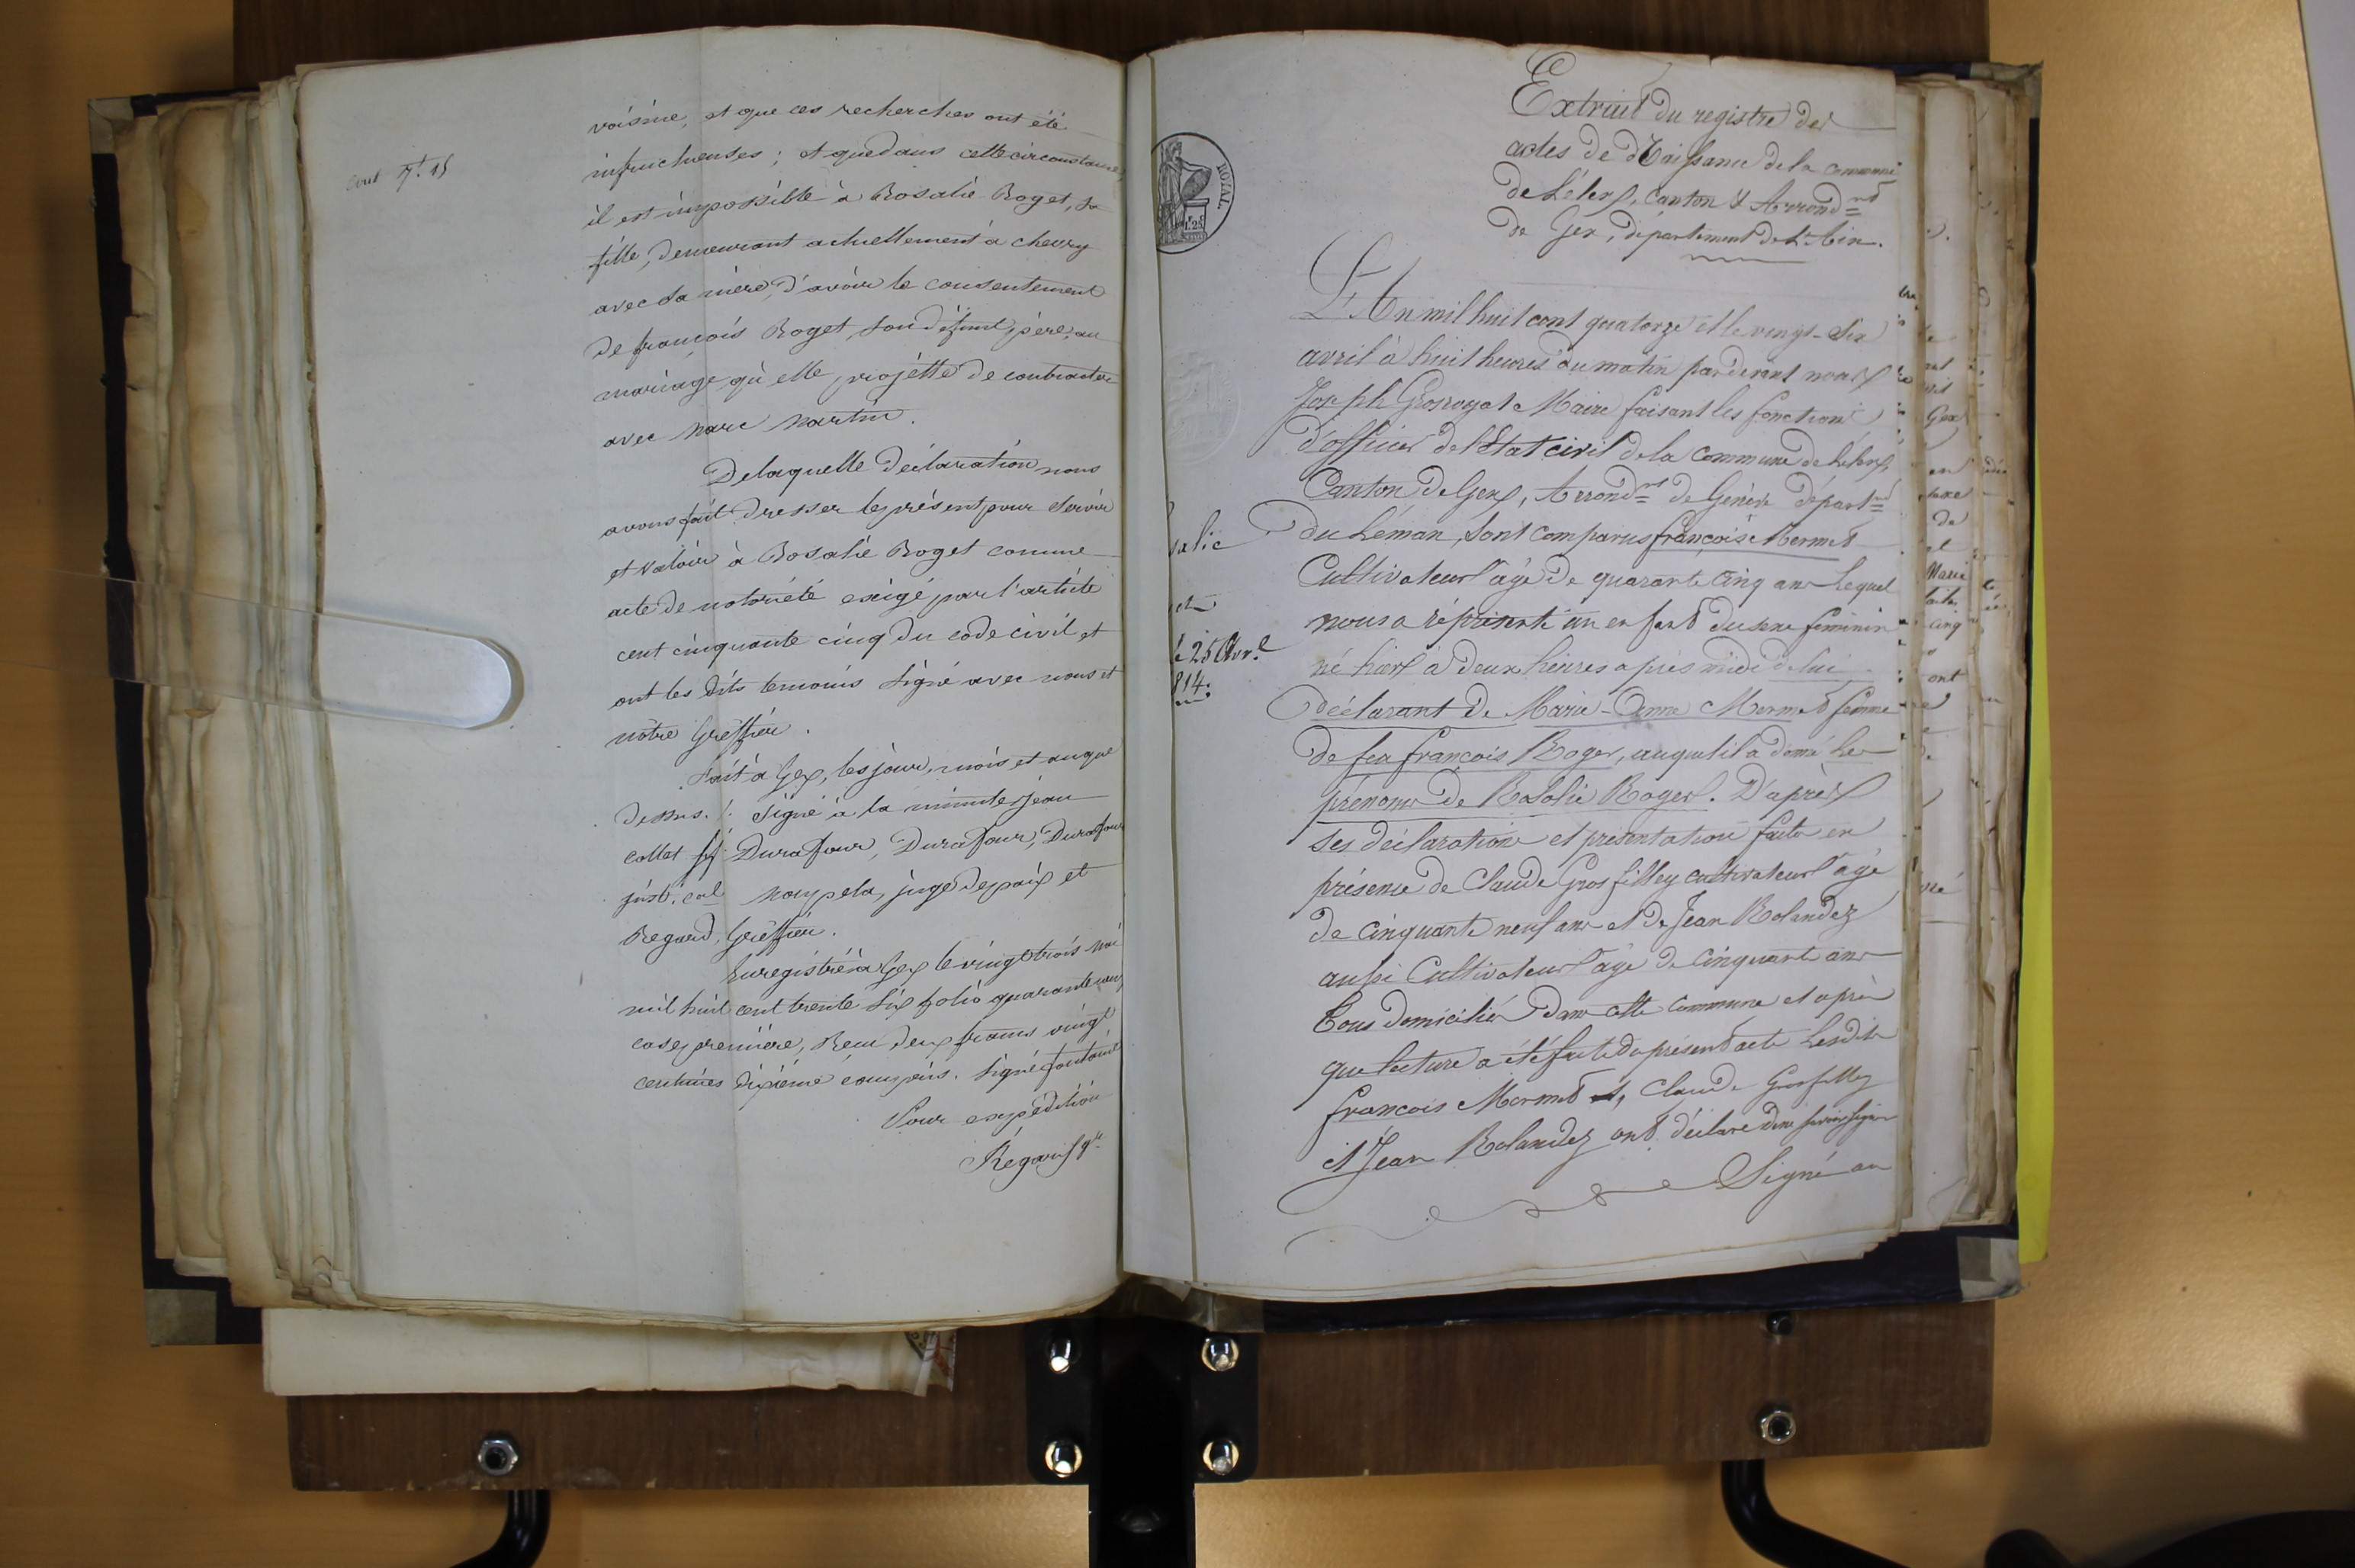 Cout 7f. 15
voisine, et que ces recherches ont été
infructueuses ; et que dans cette circonstance,
il est impossible à Rosalie Roget, sa
fille, demeurant actuellement à chevry
avec sa mère, d'avoir le consentement
de françois Roget, son défunt père, au
mariage qu'elle projette de contracter
avec Marc Martin.
De laquelle déclaration nous
avons fait dresser le présent pour servir
et valoir à Rosalie Roget comme
acte de notoriété exigé par l'article
cent cinquante cinq du code civil et
ont les dits temoins signé avec nous et
notre Greffier.
Fait à Gex, les jour, mois et an que
dessus. Signé à la minute jean
collet Durafour, Durafour, Durafour
juge de paix et
Regard, Greffier.
Enregistré à Gex le vingt trois mai
mil huit cent trente six folio quarante
case première, Reçu deux francs vingt
centimes dixième compris. Signé fontaine
Pour expédition
Régard gr.
ROYAL
1f.25
Extrait du registre des
actes de Naissance de la commune
de Lélex, Canton & Arrond.nt
de Gex, département de l'Ain.
L'An mil huit cent quatorze et le vingt-six
avril à huit heures du matin par devant nous
Joseph Grosroyat Maire faisant les fonctions
d'officier de l'Etat civil de la Commune de Lélex,
Canton de Gex, Arrond.nt de Genève départ.nt
du Léman, sont comparus françois Mermet
Cultivateur âgé de quarante cinq ans Lequel
nous a représenté un enfant du sexe féminin
né hier à deux heures après midi de lui
déclarant de Marie-Anne Mermet femme
de feu françois Roger, auquel il a donné les
prénoms de Rosalie Roger. D'après
ses déclaration et présentation faite en
présence de Claude Grosfilley cultivateur âgé
de cinquante neuf ans et de Jean Rolandez
aussi Cultivateur âgé de cinquante ans
Tous domiciliés dans cette commune et après
que lecture a été faite du présent acte Lesdits
françois Mermet, Claude Grosfilley
et Jean Rolandez ont déclaré de ne savoir signer
Signé au
salie
le 25 Avr.l
814.
Gex
en
sexe
de
et
Marie
cinq
ont